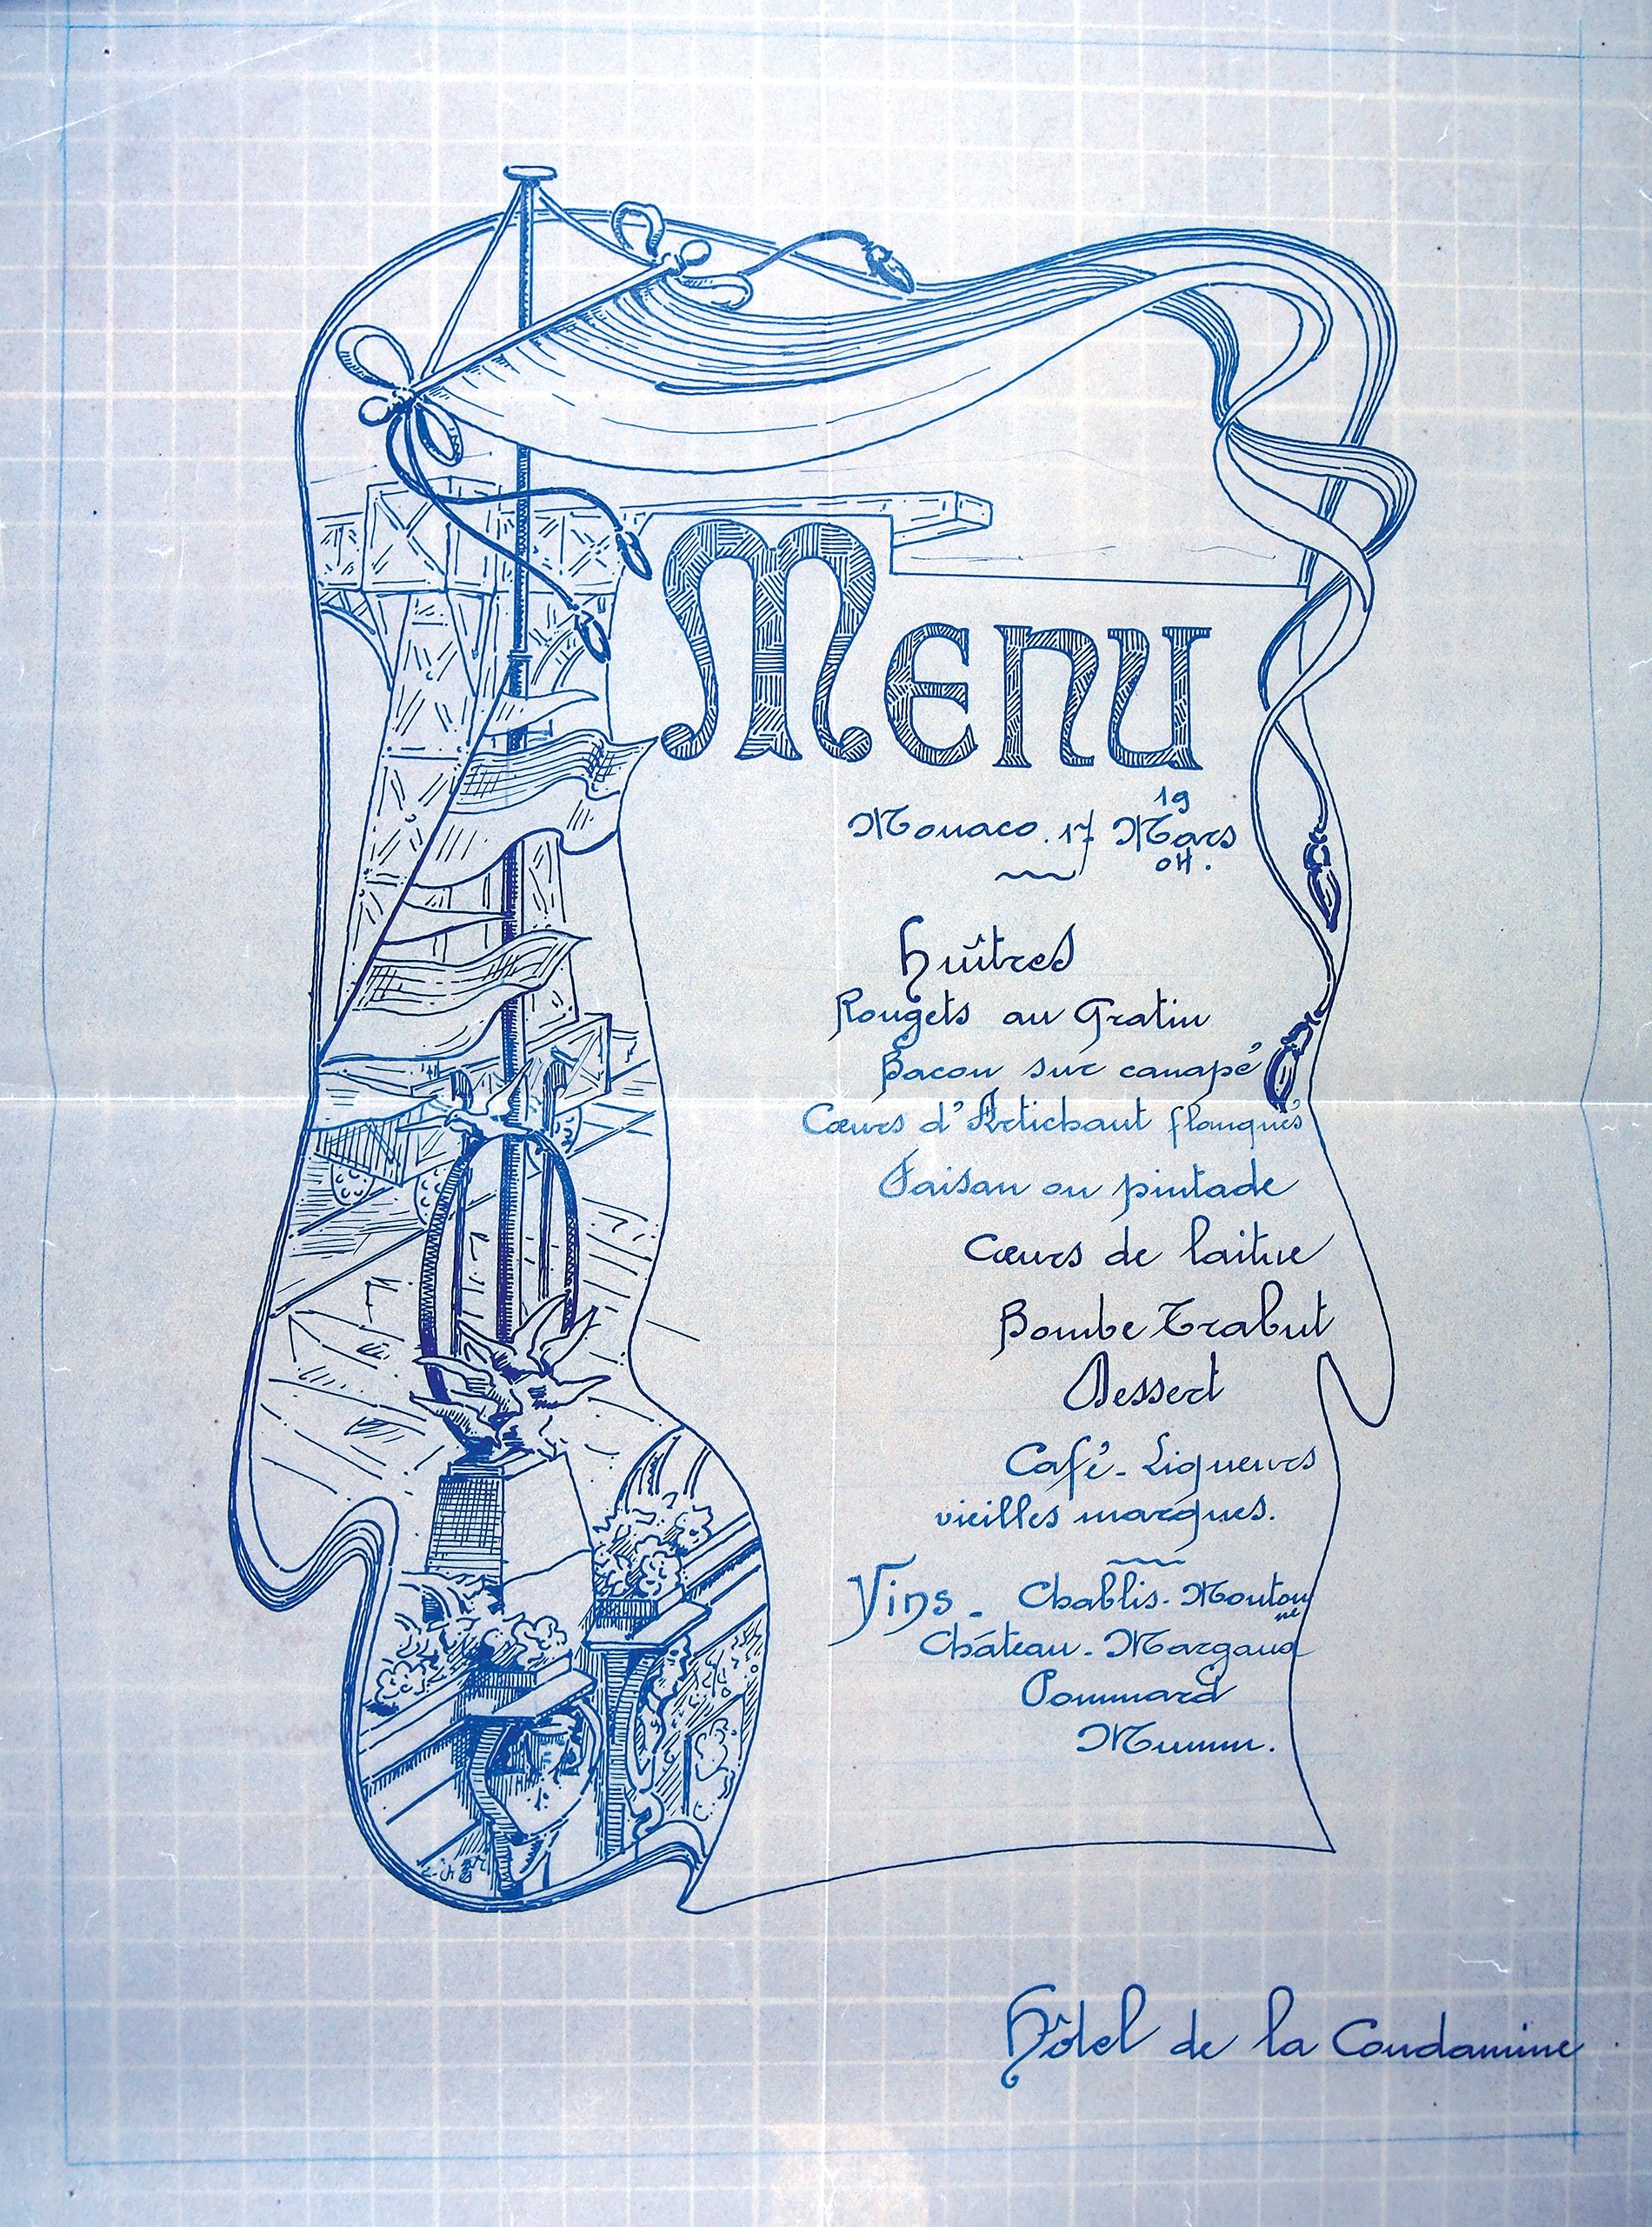 Menu
Monaco. 17 Mars 1904.
Huîtres
Rougets au Gratin
Bacon sur canapé
Cœurs d'Artichaut flanqués
Faisan ou pintade
Cœurs de laitue
Bombe Trabut
Dessert
Café - Liqueurs
vieilles marques.
Vins - Chablis - Moutonne
Château - Margaux
Pommard
Mumm.
Hôtel de la Condamine